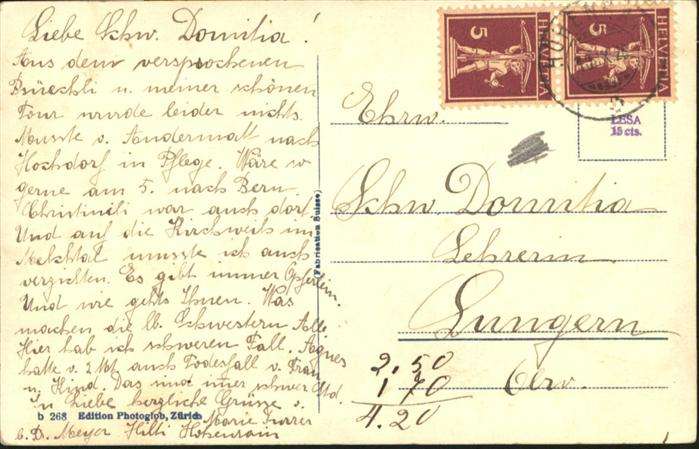 Liebe Schw. Domitia!
Aus dem versprochenen
Bsüechli u. meiner schönen
Tour wurde leider nichts.
Musste v. Andermatt nach
Hochdorf in Pflege. Wäre so
gerne am 5. nach Bern.
Christineli war auch dort.
Und auf die Kirchweih in
Melchtal musste ich auch
verzichten. Es gibt immer Opferlein.
Und wie gehts Ihnen. Was
machen die lb. Schwestern Alle
Hier hab ich schweren Fall. Agnes
hatte v. 2 Mt. auch Todesfall v. Frau
u. Kind. Das sind schwer Std.
In Liebe herzliche Grüsse v.
Marie Furrer
b. D. Meyer Hilti Hohenrain
b 268 Edition Photoglob, Zürich
(Fabrication Suisse)
5 HELVETIA
5 HELVETIA
LESA
15 cts.
Ehrw.
Schw Domitia
Lehrerin
Lungern
Obw.
2.50
1 70
4.20